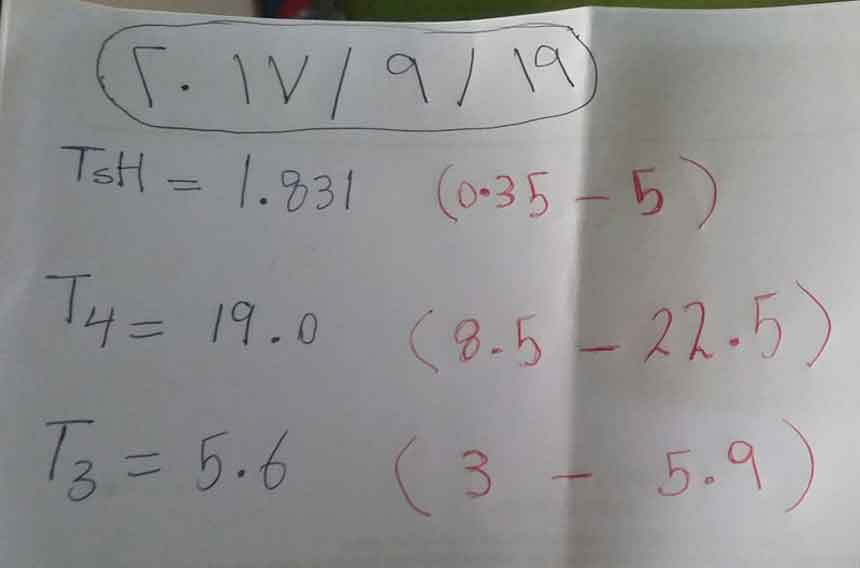 ٢٠١٧/٩/١٩
TSH = 1.831 (0.35 - 5)
T4 = 19.0 (8.5 - 22.5)
T3 = 5.6 (3 - 5.9)